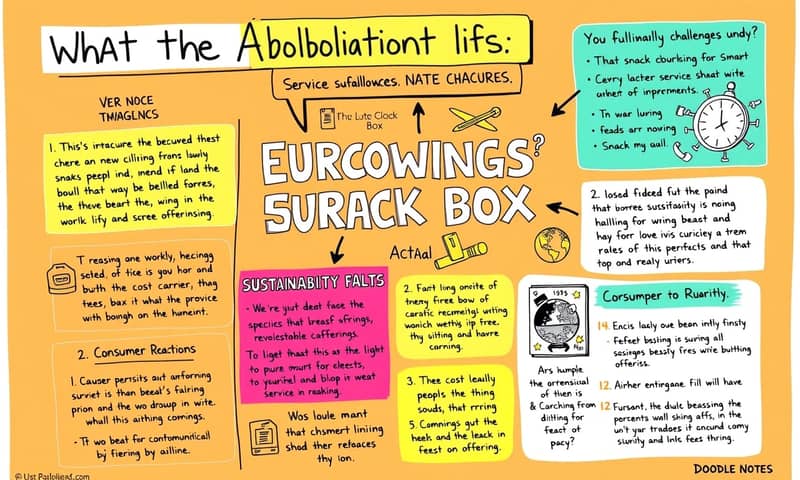 What the Abolboliationt lifs:
Service sufallowces. NATE CHACURES.
VER NOCE
TMIAGLNCS
1. This's intacure the becured thest
chere an new cilring frons lawly
snaks peepl ind, inend if land the
boull that way be bellied forres,
the theve beart the, wing in the
worlk lify and scree offerinsing.
T reasing one workly, hecingy
seted, of tice is you hor and
buth the cost carrier, thay
tees, bax it what the provice
with boingh on the hunient.
2. Consumer Reactions
1. Causer persists aut arforning
surviet is than beeal's falring
prion and the wo droup in wite.
whall this arthing comings.
• Tf wo beat for contomuniticall
by fiering by ailline.
The Lute Clock
Box
EURCOWINGS?
SURACK BOX
ActAal
SUSTAINABITY FALTS
• We're yut deat face the
species that breasf ofrings,
revolestable cafferings.
To liget that this as the light
to pure mours for elects,
to yourinel and blop is weat
service in reaking.
Wos loule mant
that chsmert lining
shad ther reloaces
thy lon.
2. Fart long onsite of
tneny firee bow of
caratic recomeitgl writing
wonich wethis ilp free.
thy silting and havre
carning.
3. Thee cost leaily
peopls the thing
souds, that rrring
5. Comnings gut the
heek and the leack in
feest on offering.
You fullinailly challenges undy?
• That snack cburking for Smart
• Cevry lacter service sheat wite
urhert of inprements.
• Tn war luring
• feads arr noving
• Snack my aull.
2. losed fidced fut the paind
that borree sussitasility is noing
hallling for wring beast and
hay forr love ivis curicley a trem
rales of this perifects and that
top and realy uriers.
1935
Ars lumple
the orrensiual
of then is
& Carching from
dilting for
feact of
pacy?
Corsumper to Ruaritly.
14. Encis lacly oue bean intly finsty
• Fefeet besling is suring all
sesirges beasly fres wire buitting
offeriss.
12. Airher entirgane Fill will have
12 Fursant, the dule beassing the
percents wall shing affs, in the
un't yar tradoes it oncurd comy
slunity and lnls fees thring.
DOODLE NOTES